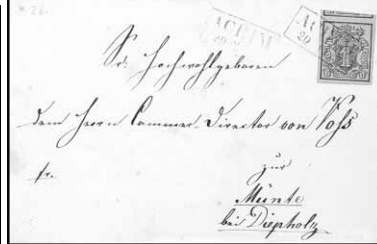 * 26.
ACHIM
20
AC
20
Sr. Hochwohlgeboren
dem Herrn Cammer-Director von Voß
zur
fr.
Münte
bei Diepholz